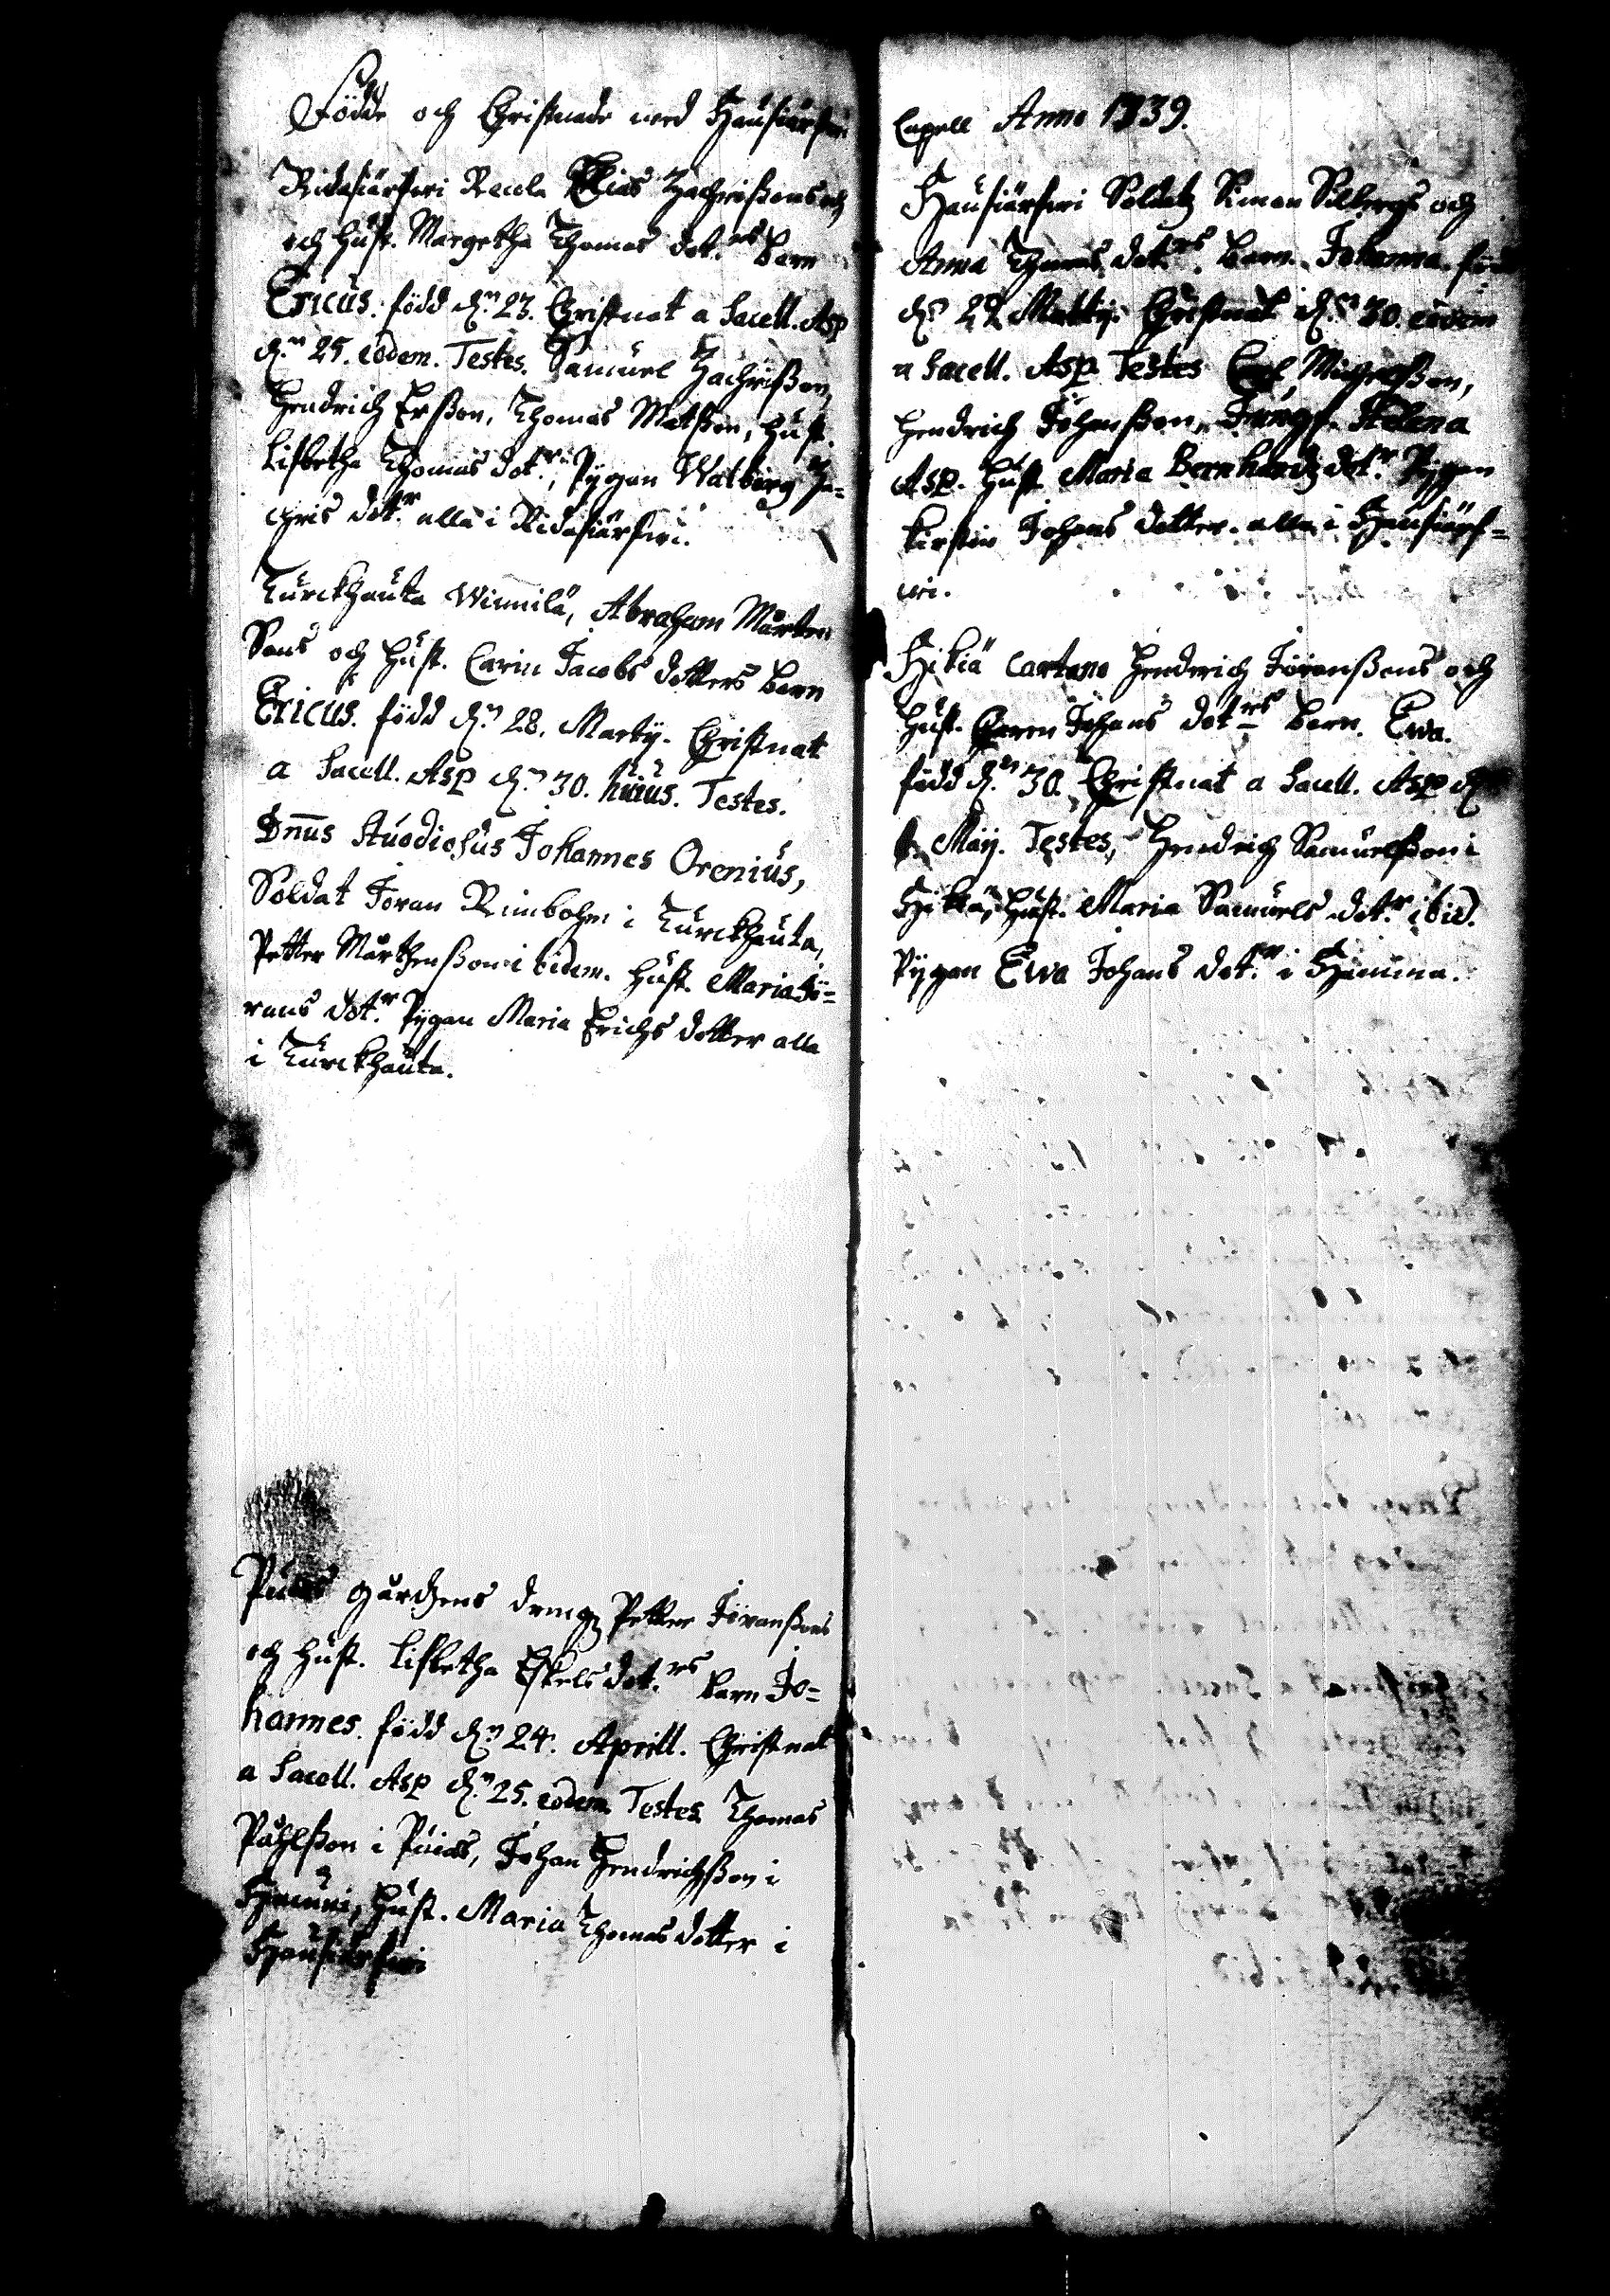 Födde och Christnade wed Hausiärfwi
Ridasiärfwi Recola Elias Zachrißons och
och hust. Margetha Thomas dot:rs barn
Ericus. född d:n 23. Christnat a Sacell. Asp
d:n 25. eodem. Testes. Samuel Zachrißon,
Hendrich Erßon, Thomas Matßon, hust.
Lisbetha Thomas dot:r, Pygan Walborg Za=
chris dot:r alla i Ridasiärfwi.
Turckhauta Wimila, Abraham Mårten
Sons och hust. Carin Jacobs dotters barn
Ericus. född d:n 28. Martÿ. Christnat
a Sacell. Asp d:n 30. huius. Testes.
Dnus Studiosus Johannes Orenius,
Soldat Joran Rimbohm i Turckhauta,
Petter Mårthenßon ibidem. hust. Maria Jö=
rans dot:r Pygan Maria Erichs dotter alla
i Turckhauta.
Puias gårdzens dreng Petter Jöranßons
och hust. Lisbetha Eskels dot:rs barn Jo=
hannes. född d:n 24. Aprill. Christnat
a Sacell. Asp d:n 25. eodem. Testes Thomas
Påhlßon i Puias, Johan Hendrichßon i
hust. Maria Thomas dotter i
Hausiärfwi
Capell Anno 1739.
Hausiärfwi Soldatz Simon Silbergs och
Anna Thomas dot:rs barn. Johanna. född
d:n 29 Martÿ. Christnat d:n 30. eodem
a Sacell. Asp Testes Carl Michelßon,
Hendrich Johanßon, Jungf. Helena
Asp. hust. Maria Bernhardz dot:r Pygan
Kirstin Johans dotter. alla i Hausiärf=
wi.
Hikiä Cartano Hendrich Jöranßons och
hust. Caren Johans dot:rs barn. Ewa.
född d:n 30. Christnat a Sacell. Asp d:n
Maÿ. Testes, Hendrich Samuelßon i
Hikiä, hust. Maria Samuels dot:r ibid.
Pygan Ewa Johans dot:r i